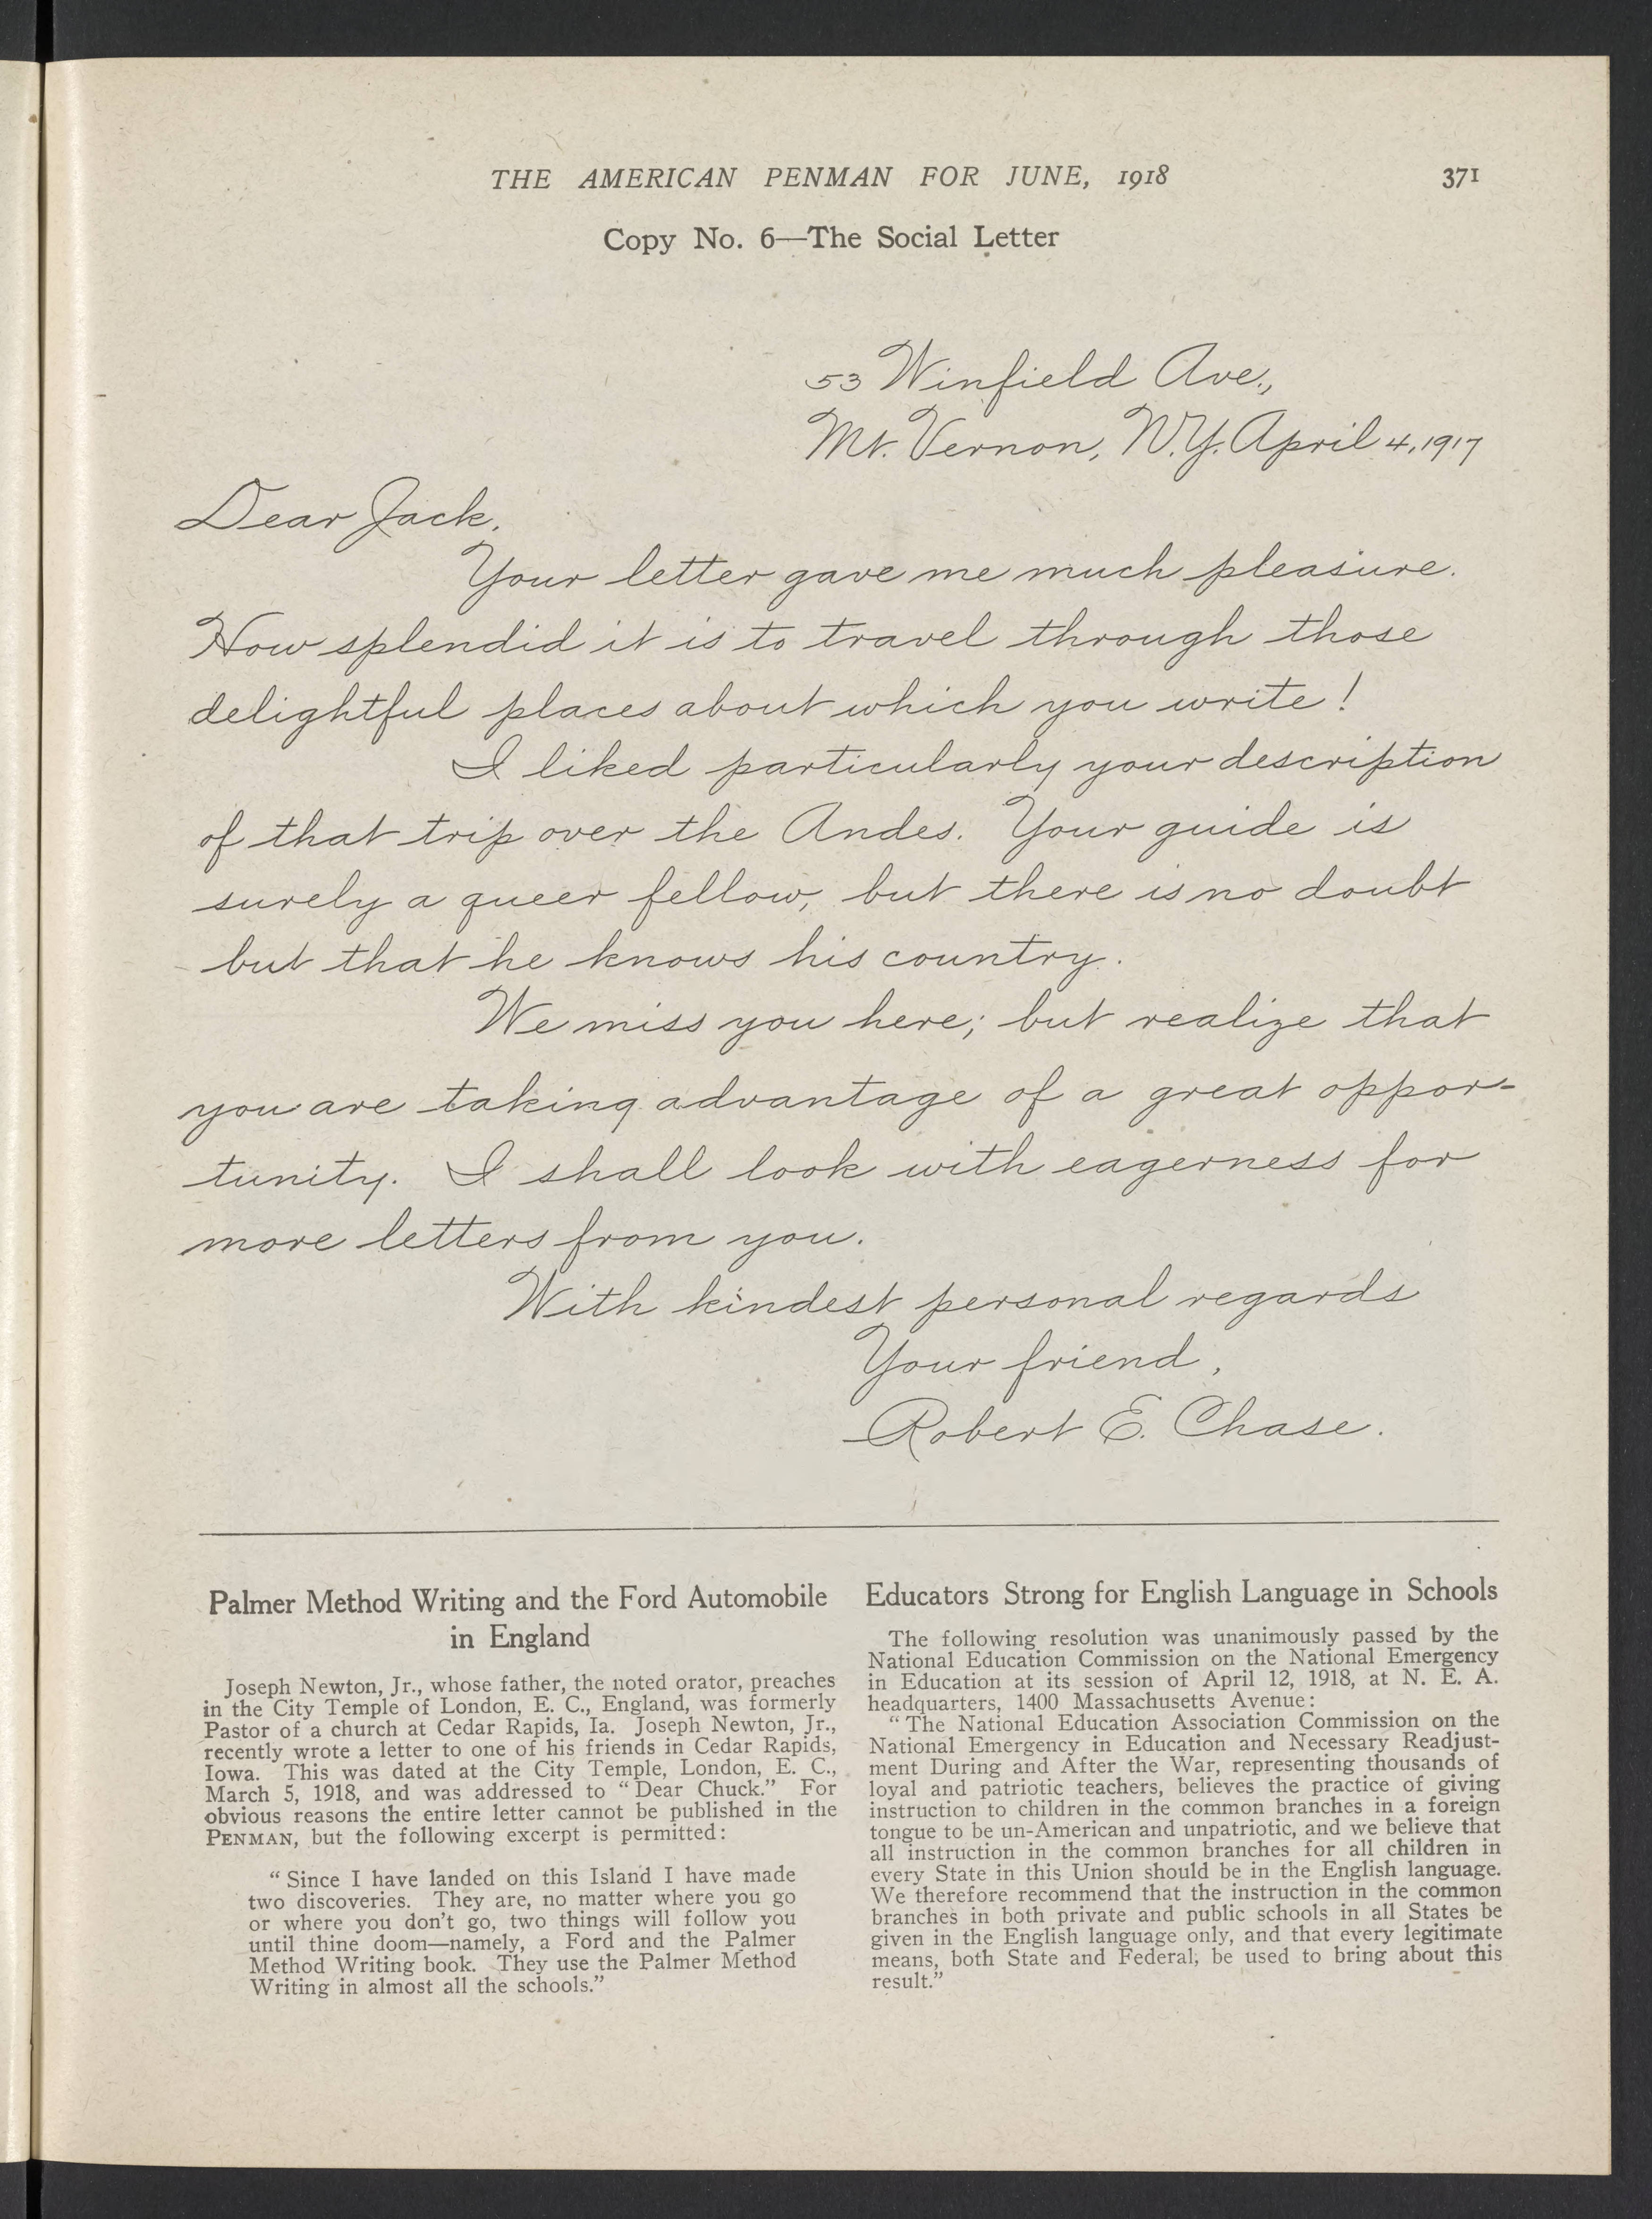 THE AMERICAN PENMAN FOR JUNE, 1918 371
Copy No. 6—The Social Letter
53 Winfield Ave.,
Mt. Vernon, N.Y. April 4, 1917
Dear Jack,
Your letter gave me much pleasure.
How splendid it is to travel through those
delightful places about which you write!
I liked particularly your description
of that trip over the Andes. Your guide is
surely a queer fellow, but there is no doubt
but that he knows his country.
We miss you here; but realize that
you are taking advantage of a great oppor-
tunity. I shall look with eagerness for
more letters from you.
With kindest personal regards
Your friend,
Robert E. Chase.
Palmer Method Writing and the Ford Automobile
in England
Joseph Newton, Jr., whose father, the noted orator, preaches
in the City Temple of London, E. C., England, was formerly
Pastor of a church at Cedar Rapids, Ia. Joseph Newton, Jr.,
recently wrote a letter to one of his friends in Cedar Rapids,
Iowa. This was dated at the City Temple, London, E. C.,
March 5, 1918, and was addressed to “Dear Chuck.” For
obvious reasons the entire letter cannot be published in the
PENMAN, but the following excerpt is permitted:
“Since I have landed on this Island I have made
two discoveries. They are, no matter where you go
or where you don’t go, two things will follow you
until thine doom—namely, a Ford and the Palmer
Method Writing book. They use the Palmer Method
Writing in almost all the schools.”
Educators Strong for English Language in Schools
The following resolution was unanimously passed by the
National Education Commission on the National Emergency
in Education at its session of April 12, 1918, at N. E. A.
headquarters, 1400 Massachusetts Avenue:
“The National Education Association Commission on the
National Emergency in Education and Necessary Readjust-
ment During and After the War, representing thousands of
loyal and patriotic teachers, believes the practice of giving
instruction to children in the common branches in a foreign
tongue to be un-American and unpatriotic, and we believe that
all instruction in the common branches for all children in
every State in this Union should be in the English language.
We therefore recommend that the instruction in the common
branches in both private and public schools in all States be
given in the English language only, and that every legitimate
means, both State and Federal, be used to bring about this
result.”